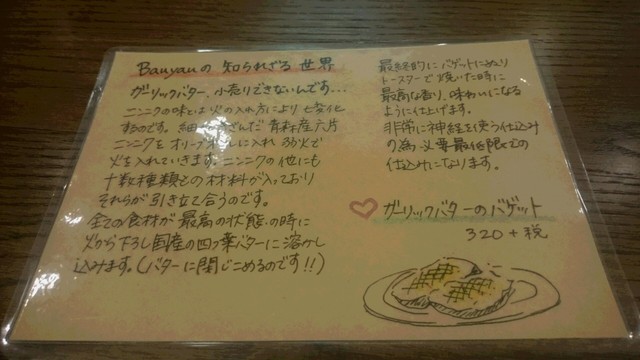 Banyanの知られざる世界
ガーリックバター、小売りできないんです...
ニンニクの味とは火の入れ方により七変化
するのです。細かくきざんだ青森産六片
ニンニクをオリーブオイルに入れ弱火で
火を入れていきます。ニンニクの他にも
十数種類との材料が入っており
それらが引き立て合うのです。
全ての食材が最高の状態の時に
火から下ろし国産の四つ葉バターに溶かし
込みます。(バターに閉じこめるのです!!)
最終的にバゲットにぬり
トースターで焼いた時に
最高な香り、味わいになる
ように仕上げます。
非常に神経を使う仕込み
の為、必要最低限での
仕込みになります。
ガーリックバターのバゲット
320+税